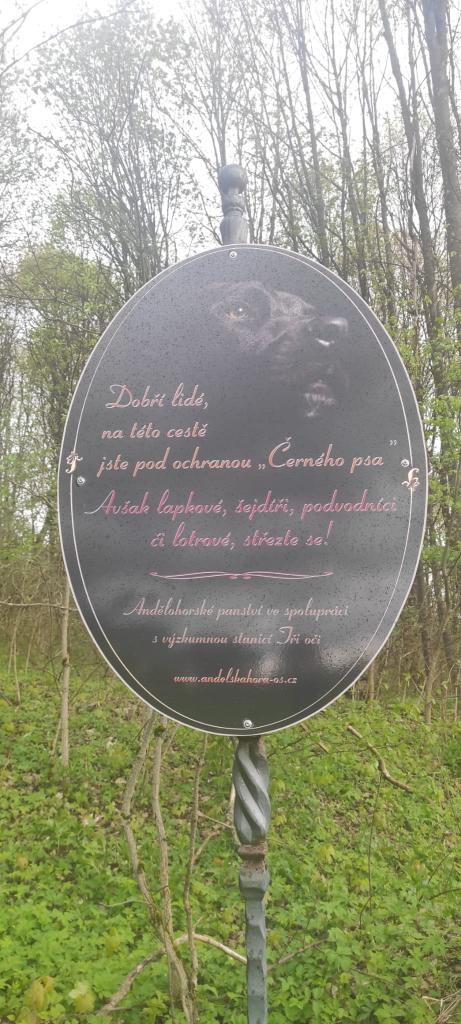 Dobří lidé,
na této cestě
jste pod ochranou „Černého psa”
Avšak lapkové, šejdíři, podvodníci
či lotrové, střezte se!
Andělohorské panství ve spolupráci
s výzkumnou stanicí Tři oči
www.andelskahora-os.cz